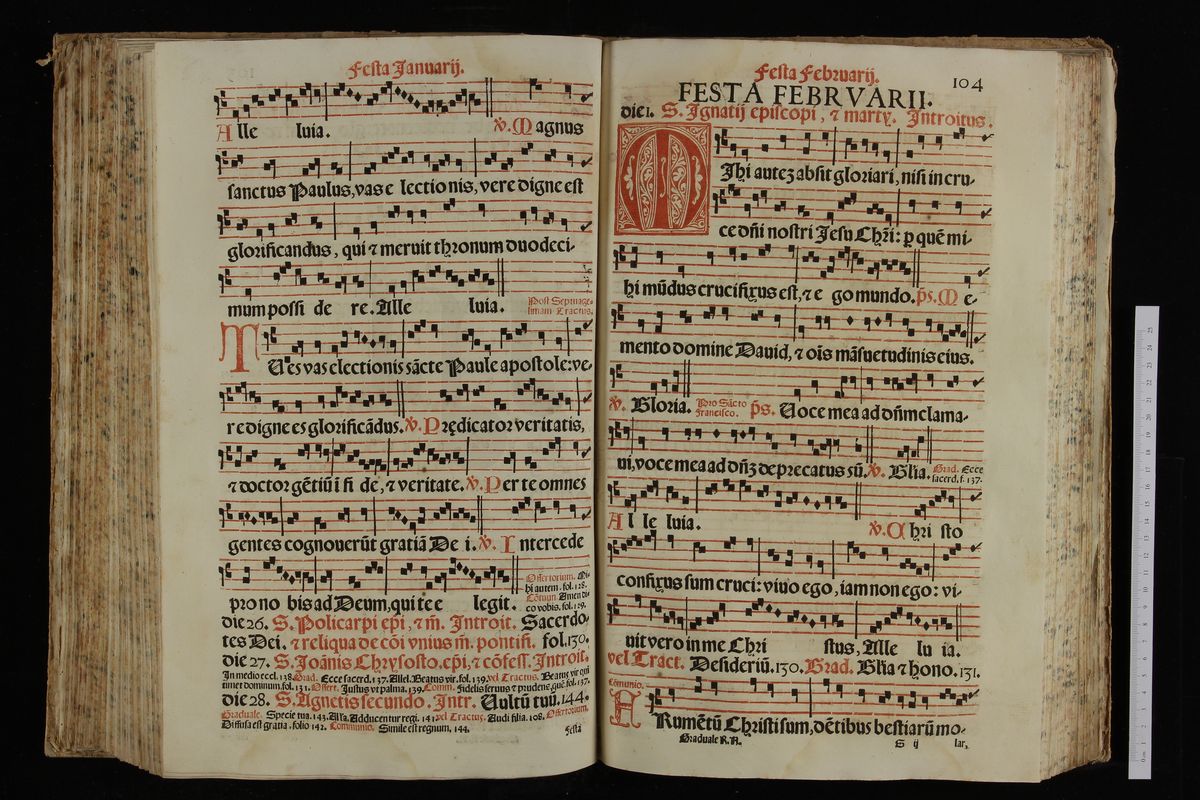 Festa Januarij.
Alle luia. ℣. Magnus
sanctus Paulus, vas e lectio nis, vere digne est
glorificandus, qui ⁊ meruit thronum duodeci-
mum possi de re. Alle luia.
Post Septuage-
simam Tractus.
TU es vas electionis sācte Paule apostole: ve-
re digne es glorificādus. ℣. Prędicator veritatis,
⁊ doctor gētiū ī fi de, ⁊ veritate. ℣. Per te omnes
gentes cognouerūt gratiā De i. ℣. Intercede
pro no bis ad Deum, qui te e legit.
Offertorium. Mi-
hi autem. fol. 128.
Cōmun. Amen di-
co vobis. fol. 129.
die 26. S. Policarpi epī, ⁊ m̄. Introit. Sacerdo-
tes Dei. ⁊ reliqua de cōi vnius m̄. pontifi. fol. 130.
die 27. S. Joānis Chrysosto. epī. ⁊ cōfess. Introit.
In medio eccl. 138. Grad. Ecce sacerd. 137. Allel. Beatus vir. fol. 139. vel Tractus. Beatus vir qui
timet dominum. fol. 131. Offert. Justus vt palma. 139. Comm. Fidelis seruus ⁊ prudens, quē fol. 137.
die 28. S. Agnetis secundo. Intr. Vultū tuū. 144.
Graduale. Specie tua. 143. All'a. Adducentur regi. 141. vel Tractus. Audi filia. 108. Offertorium.
Diffusa est gratia. folio 142. Communio. Simile est regnum. 144.
Festa
Festa Februarij.
104
FESTA FEBRVARII.
die 1. S. Ignatij episcopi, ⁊ marty. Introitus.
MIhi autez absit gloriari, nisi in cru-
ce dn̄i nostri Jesu Chr̄i: ꝑ quē mi-
hi mūdus crucifixus est, ⁊ e go mundo. p̄s. Me-
mento domine Dauid, ⁊ oīs māsuetudinis eius.
℣. Gloria.
Pro Sācto
Francisco.
p̄s. Uoce mea ad dn̄m clama-
ui, voce mea ad dn̄z deprecatus sū. ℣. Gl'ia.
Grad. Ecce
sacerd. f. 137.
Al le luia. ℣. Chri sto
confixus sum cruci: viuo ego, iam non ego: vi-
uit vero in me Chri stus, Alle lu ia.
vel Tract. Desideriū. 130. Grad. Gl'ia ⁊ hono. 131.
Cōmunio.
FRumētū Christi sum, dētibus bestiarū mo-
Graduale R. A.
S ij
lar,